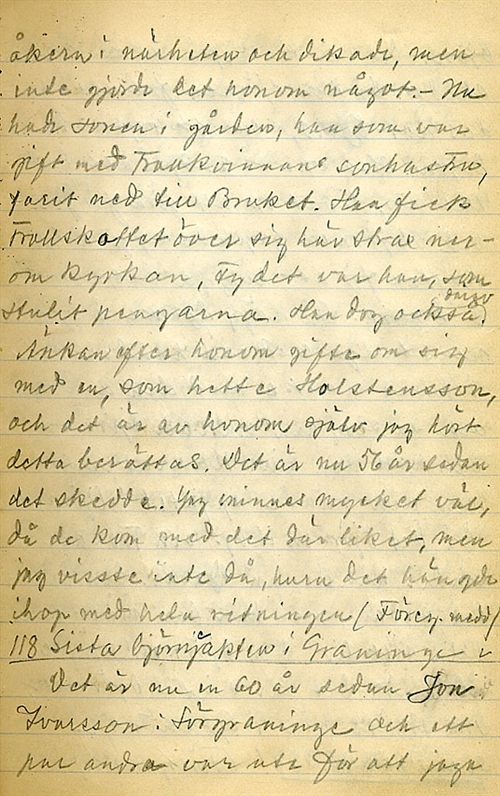 åkern i närheten och dikade, men
inte gjorde det honom något. – Nu
hade sonen i gården, han som var
gift med Trollkvinnans sonhustru,
farit ned till Bruket. Han fick
Trollskottet över sig här strax ner-
om kyrkan, Ty det var han, som
stulit pengarna. Han dog också
därav.
Änkan efter honom gifte om sig
med en, som hette Holstensson,
och det är av honom själv jag hört
detta berättas. Det är nu 56 år sedan
det skedde. Jag minnes mycket väl,
då de kom med det där liket, men
jag visste inte då, huru det hängde
ihop med hela ritningen (Föreg. medd/
118 Sista björnjakten i Graninge
Det är nu en 60 år sedan Jon
Ivarsson i Sörgraninge och ett
par andra var ute för att jaga